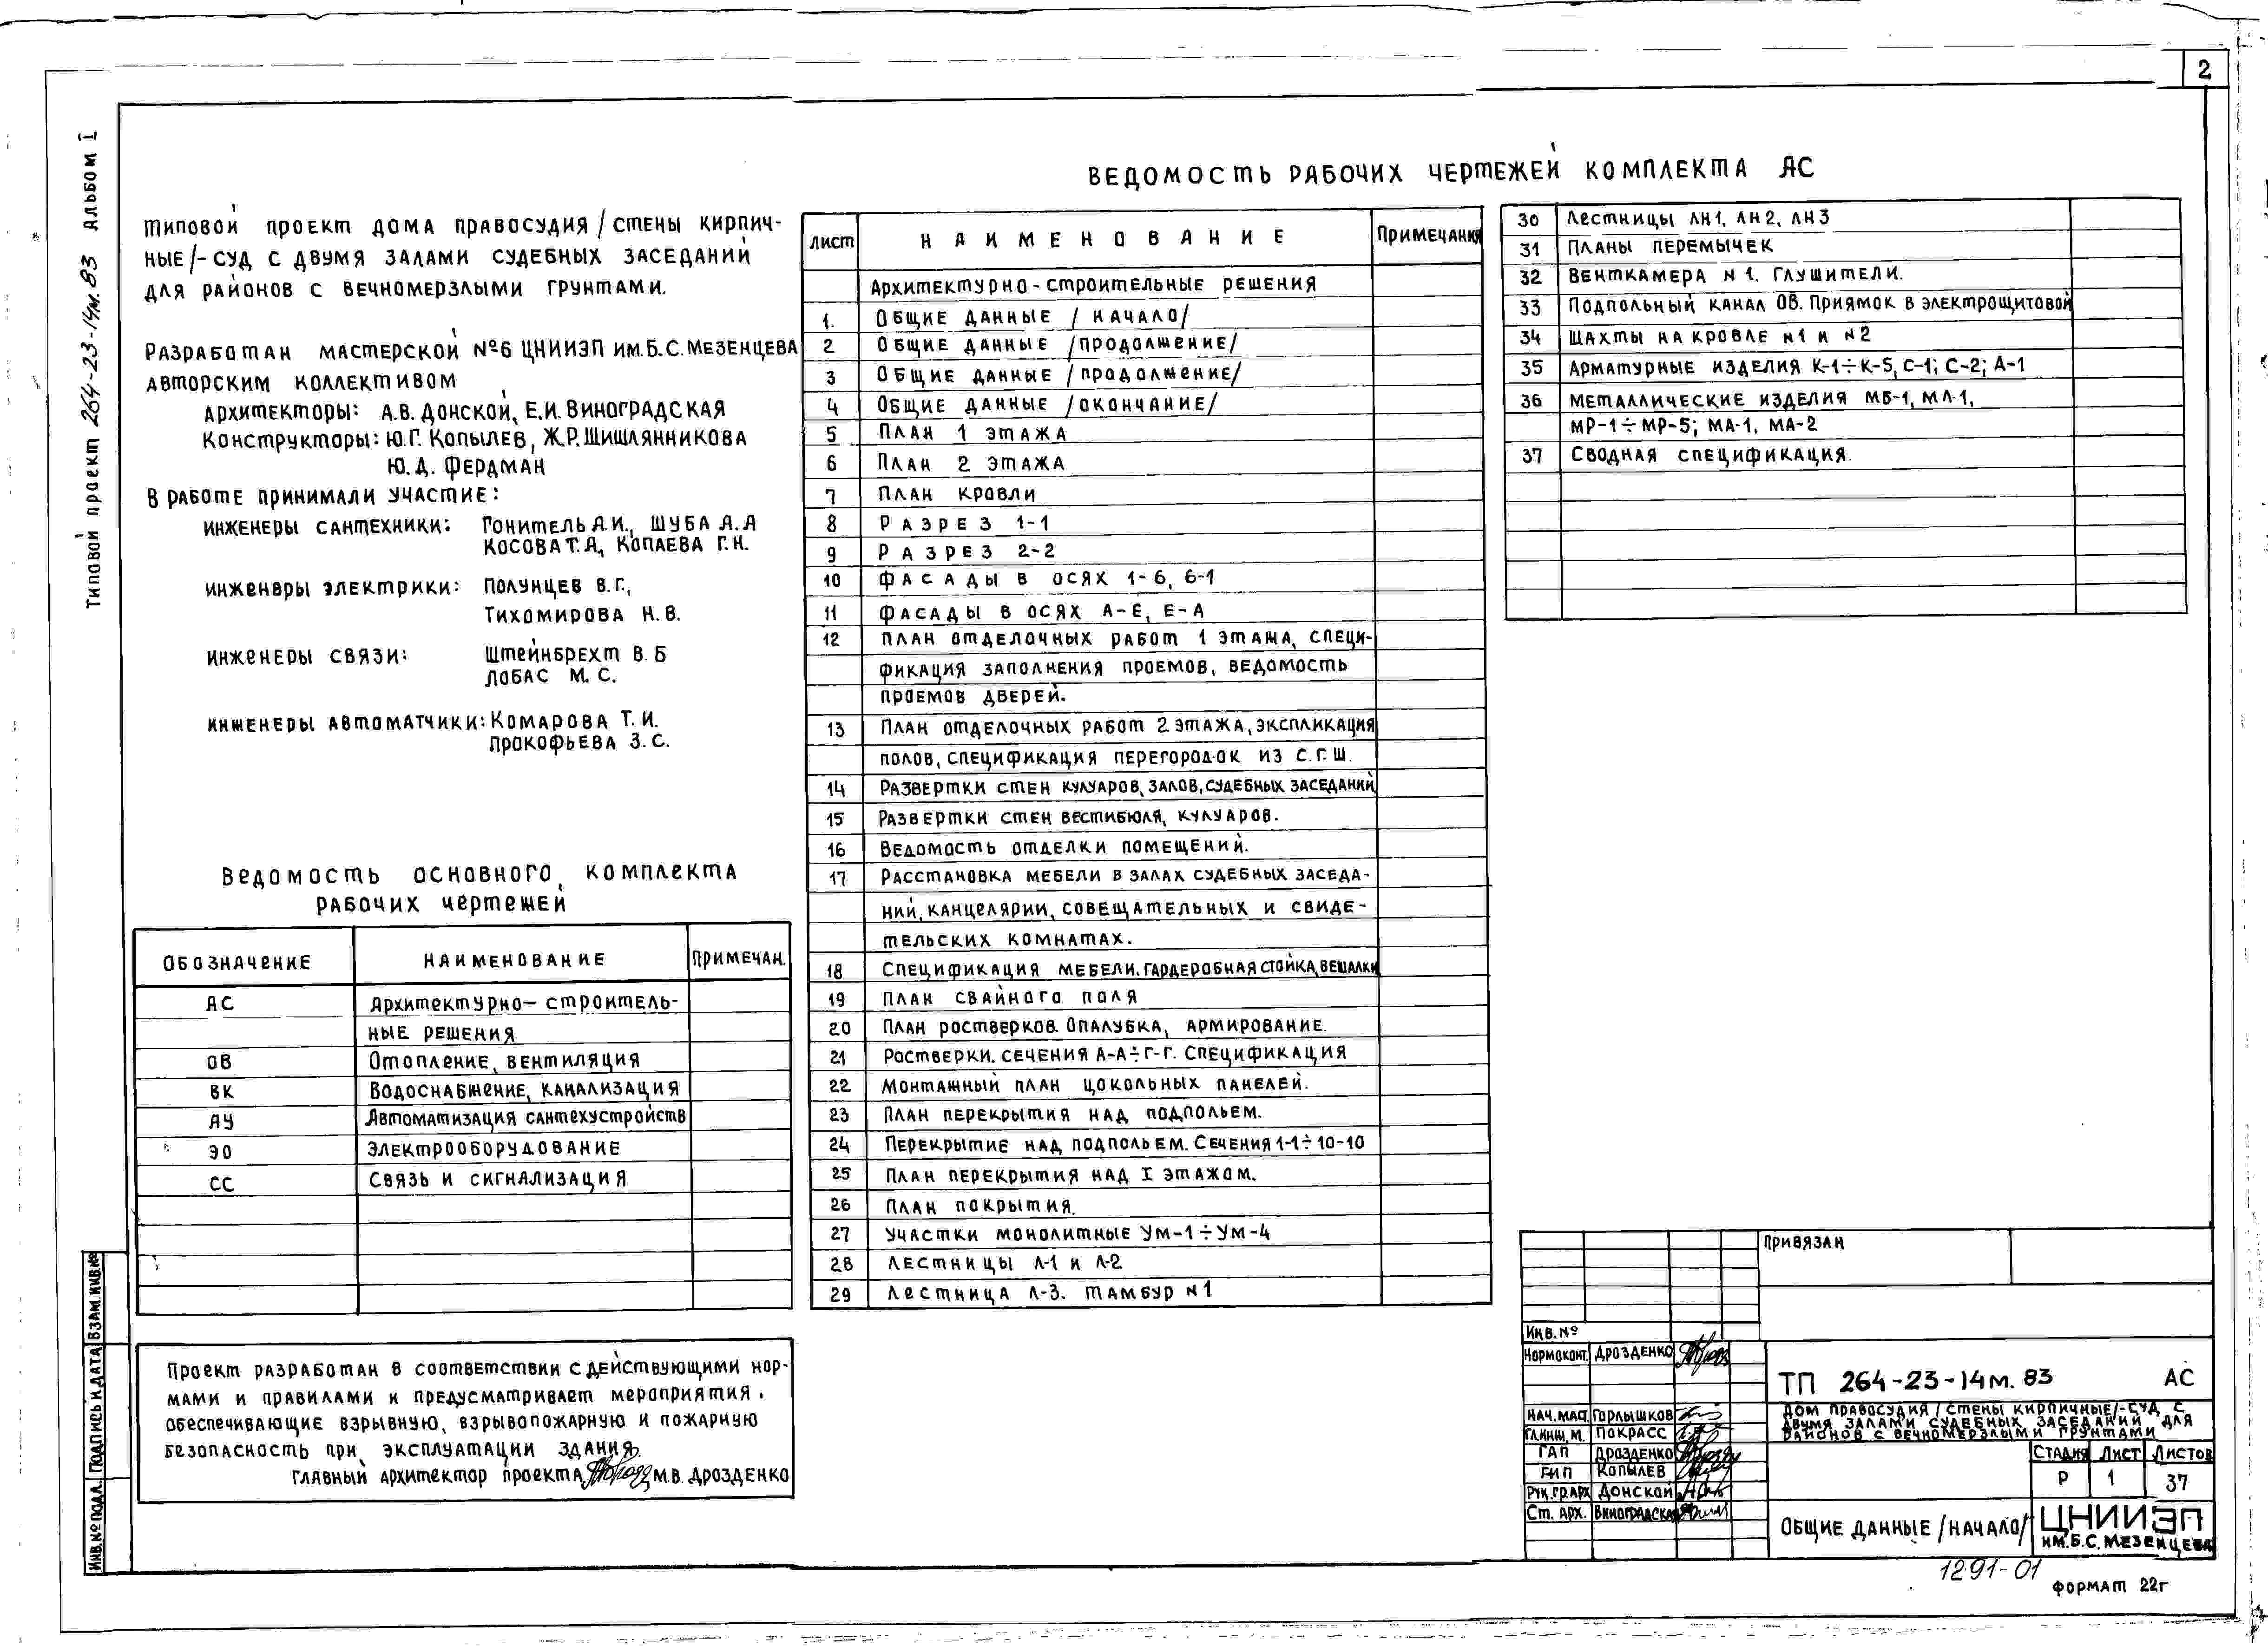 2
Типовой проект 264-23-14м.83 Альбом I
Типовой проект дома правосудия /стены кирпич-
ные/-суд с двумя залами судебных заседаний
для районов с вечномерзлыми грунтами.
Разработан мастерской №6 ЦНИИЭП им.Б.С.Мезенцева
авторским коллективом
Архитекторы: А.В. Донской, Е.И. Виноградская
Конструкторы: Ю.Г. Копылев, Ж.Р. Шишлянникова
Ю.Д. Фердман
В работе принимали участие:
инженеры сантехники: Гонитель А.И., Шуба А.А
Косова Т.А, Копаева Г.Н.
инженеры электрики: Полунцев В.Г.,
Тихомирова Н.В.
инженеры связи: Штейнбрехт В.Б
Лобас М.С.
инженеры автоматчики: Комарова Т.И.
Прокофьева З.С.
Ведомость основного комплекта
рабочих чертежей
Обозначение Наименование Примечан.
АС Архитектурно-строитель-
ные решения
ОВ Отопление, вентиляция
ВК Водоснабжение, канализация
АУ Автоматизация сантехустройств
ЭО Электрооборудование
СС Связь и сигнализация
Проект разработан в соответствии с действующими нор-
мами и правилами и предусматривает мероприятия,
обеспечивающие взрывную, взрывопожарную и пожарную
безопасность при эксплуатации здания.
Главный архитектор проекта М.В. Дрозденко
Ведомость рабочих чертежей комплекта АС
лист Наименование Примечания
Архитектурно-строительные решения
1. Общие данные /начало/
2 Общие данные /продолжение/
3 Общие данные /продолжение/
4 Общие данные /окончание/
5 План 1 этажа
6 План 2 этажа
7 План кровли
8 Разрез 1-1
9 Разрез 2-2
10 Фасады в осях 1-6, 6-1
11 Фасады в осях А-Е, Е-А
12 План отделочных работ 1 этажа, специ-
фикация заполнения проемов, ведомость
проемов дверей.
13 План отделочных работ 2 этажа, экспликация
полов, спецификация перегородок из С.Г.Ш.
14 Развертки стен кулуаров, залов, судебных заседаний
15 Развертки стен вестибюля, кулуаров.
16 Ведомость отделки помещений.
17 Расстановка мебели в залах судебных заседа-
ний, канцелярии, совещательных и свиде-
тельских комнатах.
18 Спецификация мебели. Гардеробная стойка, вешалки
19 План свайного поля
20 План ростверков. Опалубка, армирование.
21 Ростверки. Сечения А-А÷Г-Г. Спецификация
22 Монтажный план цокольных панелей.
23 План перекрытия над подпольем.
24 Перекрытие над подпольем. Сечения 1-1÷10-10
25 План перекрытия над I этажом.
26 План покрытия.
27 Участки монолитные Ум-1÷Ум-4
28 Лестницы Л-1 и Л-2
29 Лестница Л-3. Тамбур №1
30 Лестницы ЛН1, ЛН2, ЛН3
31 Планы перемычек
32 Венткамера №1. Глушители.
33 Подпольный канал ОВ. Приямок в электрощитовой
34 Шахты на кровле №1 и №2
35 Арматурные изделия К-1÷К-5, С-1; С-2; А-1
36 Металлические изделия МБ-1, МЛ-1,
МР-1÷МР-5; МА-1, МА-2
37 Сводная спецификация.
Привязан
Инв.№
Нормоконт. Дрозденко
ТП 264-23-14м.83 АС
Нач.мас. Горлышков
Гл.инж.м. Покрасс
ГАП Дрозденко
ГИП Копылев
Рук.гр.арх Донской
Ст. арх. Виноградская
Дом правосудия /стены кирпичные/-суд с
двумя залами судебных заседаний для
районов с вечномерзлыми грунтами
Стадия Лист Листов
Р 1 37
Общие данные /начало/
ЦНИИЭП
им.Б.С. Мезенцева
1291-01
формат 22г
Инв.№ подл. Подпись и дата Взам.инв.№